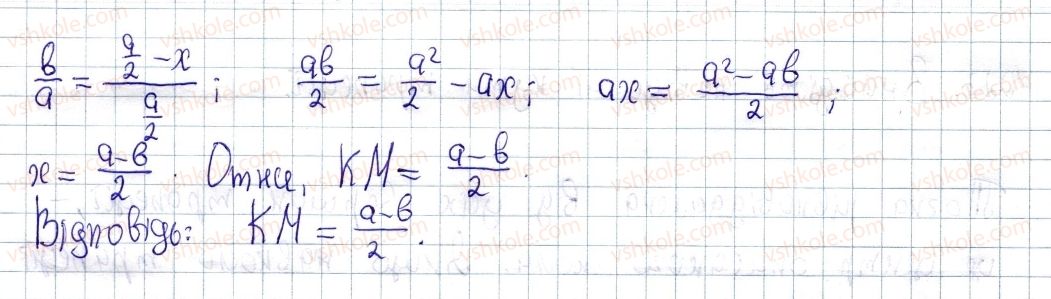 в/a = (a/2 - x)/(a/2); aв/2 = a²/2 - ax; ax = (a² - aв)/2;
x = (a-в)/2. Отже, KM = (a-в)/2.
Відповідь: KM = (a-в)/2.